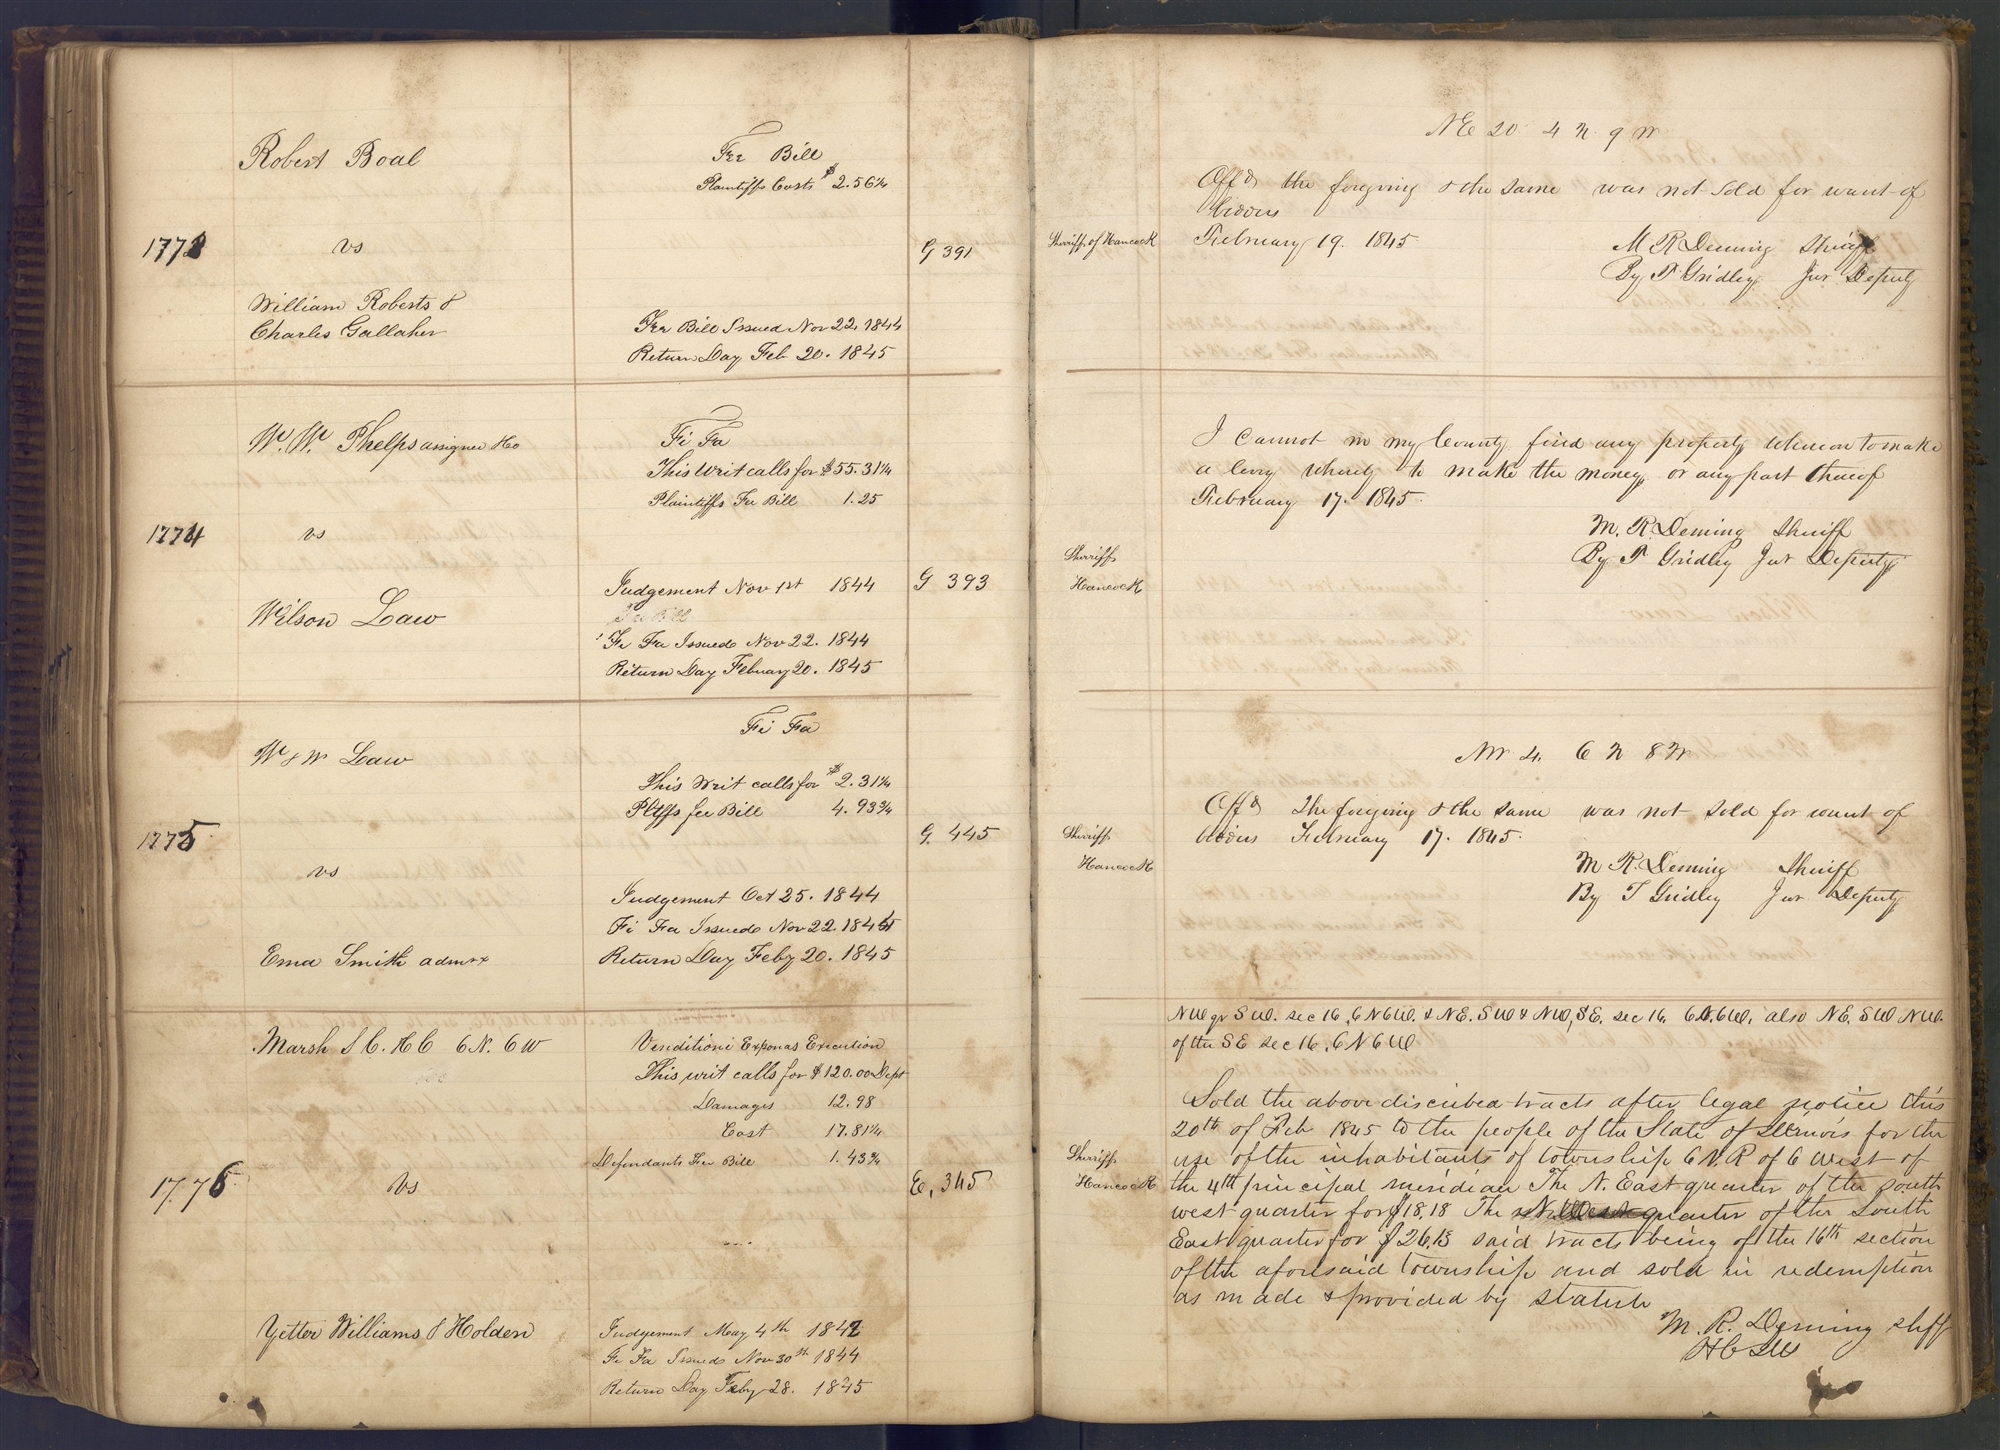 Robert Boal
Fee Bill
Plaintiffs Costs $2.56¼
1773
vs
G 391
William Roberts &
Charles Gallaher
Fee Bill Issued Nov 22, 1844
Return Day Feb 20. 1845
W. W. Phelps assignee &c
Fi Fa
This writ calls for $55.31¼
Plaintiffs Fee Bill 1.25
1774
vs
Judgement Nov 1st 1844
G 393
Wilson Law
Fee Bill
Fi Fa Issued Nov 22. 1844
Return Day Febuary 20. 1845
Fi Fa
W & W Law
This Writ calls for $2.31¼
Pltffs fee Bill 4.93¾
1775
G. 445
vs
Judgement Oct 25. 1844
Fi Fa Issued Nov 22. 1844
Ema Smith admrx
Return Day Feby 20. 1845
Marsh S C. H C 6 N. 6 W
Venditioni Exponas Execution
This writ calls for $120.00 Dept
Damages 12.98
Cost 17.81¼
Defendants Fee Bill 1.43¾
1776
vs
E, 345
Yetter Williams & Holden
Judgement May 4th 1842
Fi Fa Issued Nov 30th 1844
Return Day Feby 28. 1845
NE 20 4 N 9 W
Offd the forgoing & the same was not sold for want of
bidders
Sherriff of Hancock
February 19. 1845
M R Deming Sheriff
By T Gridley Jur Deputy
I cannot in my County find any property whereon to make
a levy whereby to make the money or any part thereof
February 17. 1845
M. R. Deming Sheriff
By T Gridley Jur Deputy
Sherriff
Hancock
NW 4. 6 N 8 W
Offd The forgoing & the same was not sold for want of
bidders February 17. 1845
Sherriff
Hancock
M R. Deming Sheriff
By T Gridley Jur Deputy
NW qr SW. sec 16, 6 N 6 W. & NE. SW & NW, SE. sec 16. 6 N. 6 W, also NE. SW NW.
of the SE sec 16, 6 N 6 W
Sold the above discribed tracts after legal notice this
20th of Feb 1845 to the people of the State of Illinois for the
use of the inhabitants of township 6 N. R of 6 west of
Sherriff
Hancock
the 4th principal meridian The N. East quarter of the south
west quarter for $18,18 The N. West quarter of the South
East quarter for $26,13 said tracts being of the 16th section
of the aforesaid township and sold in redemption
as made & provided by statute
M. R. Deming shff
H C Ills